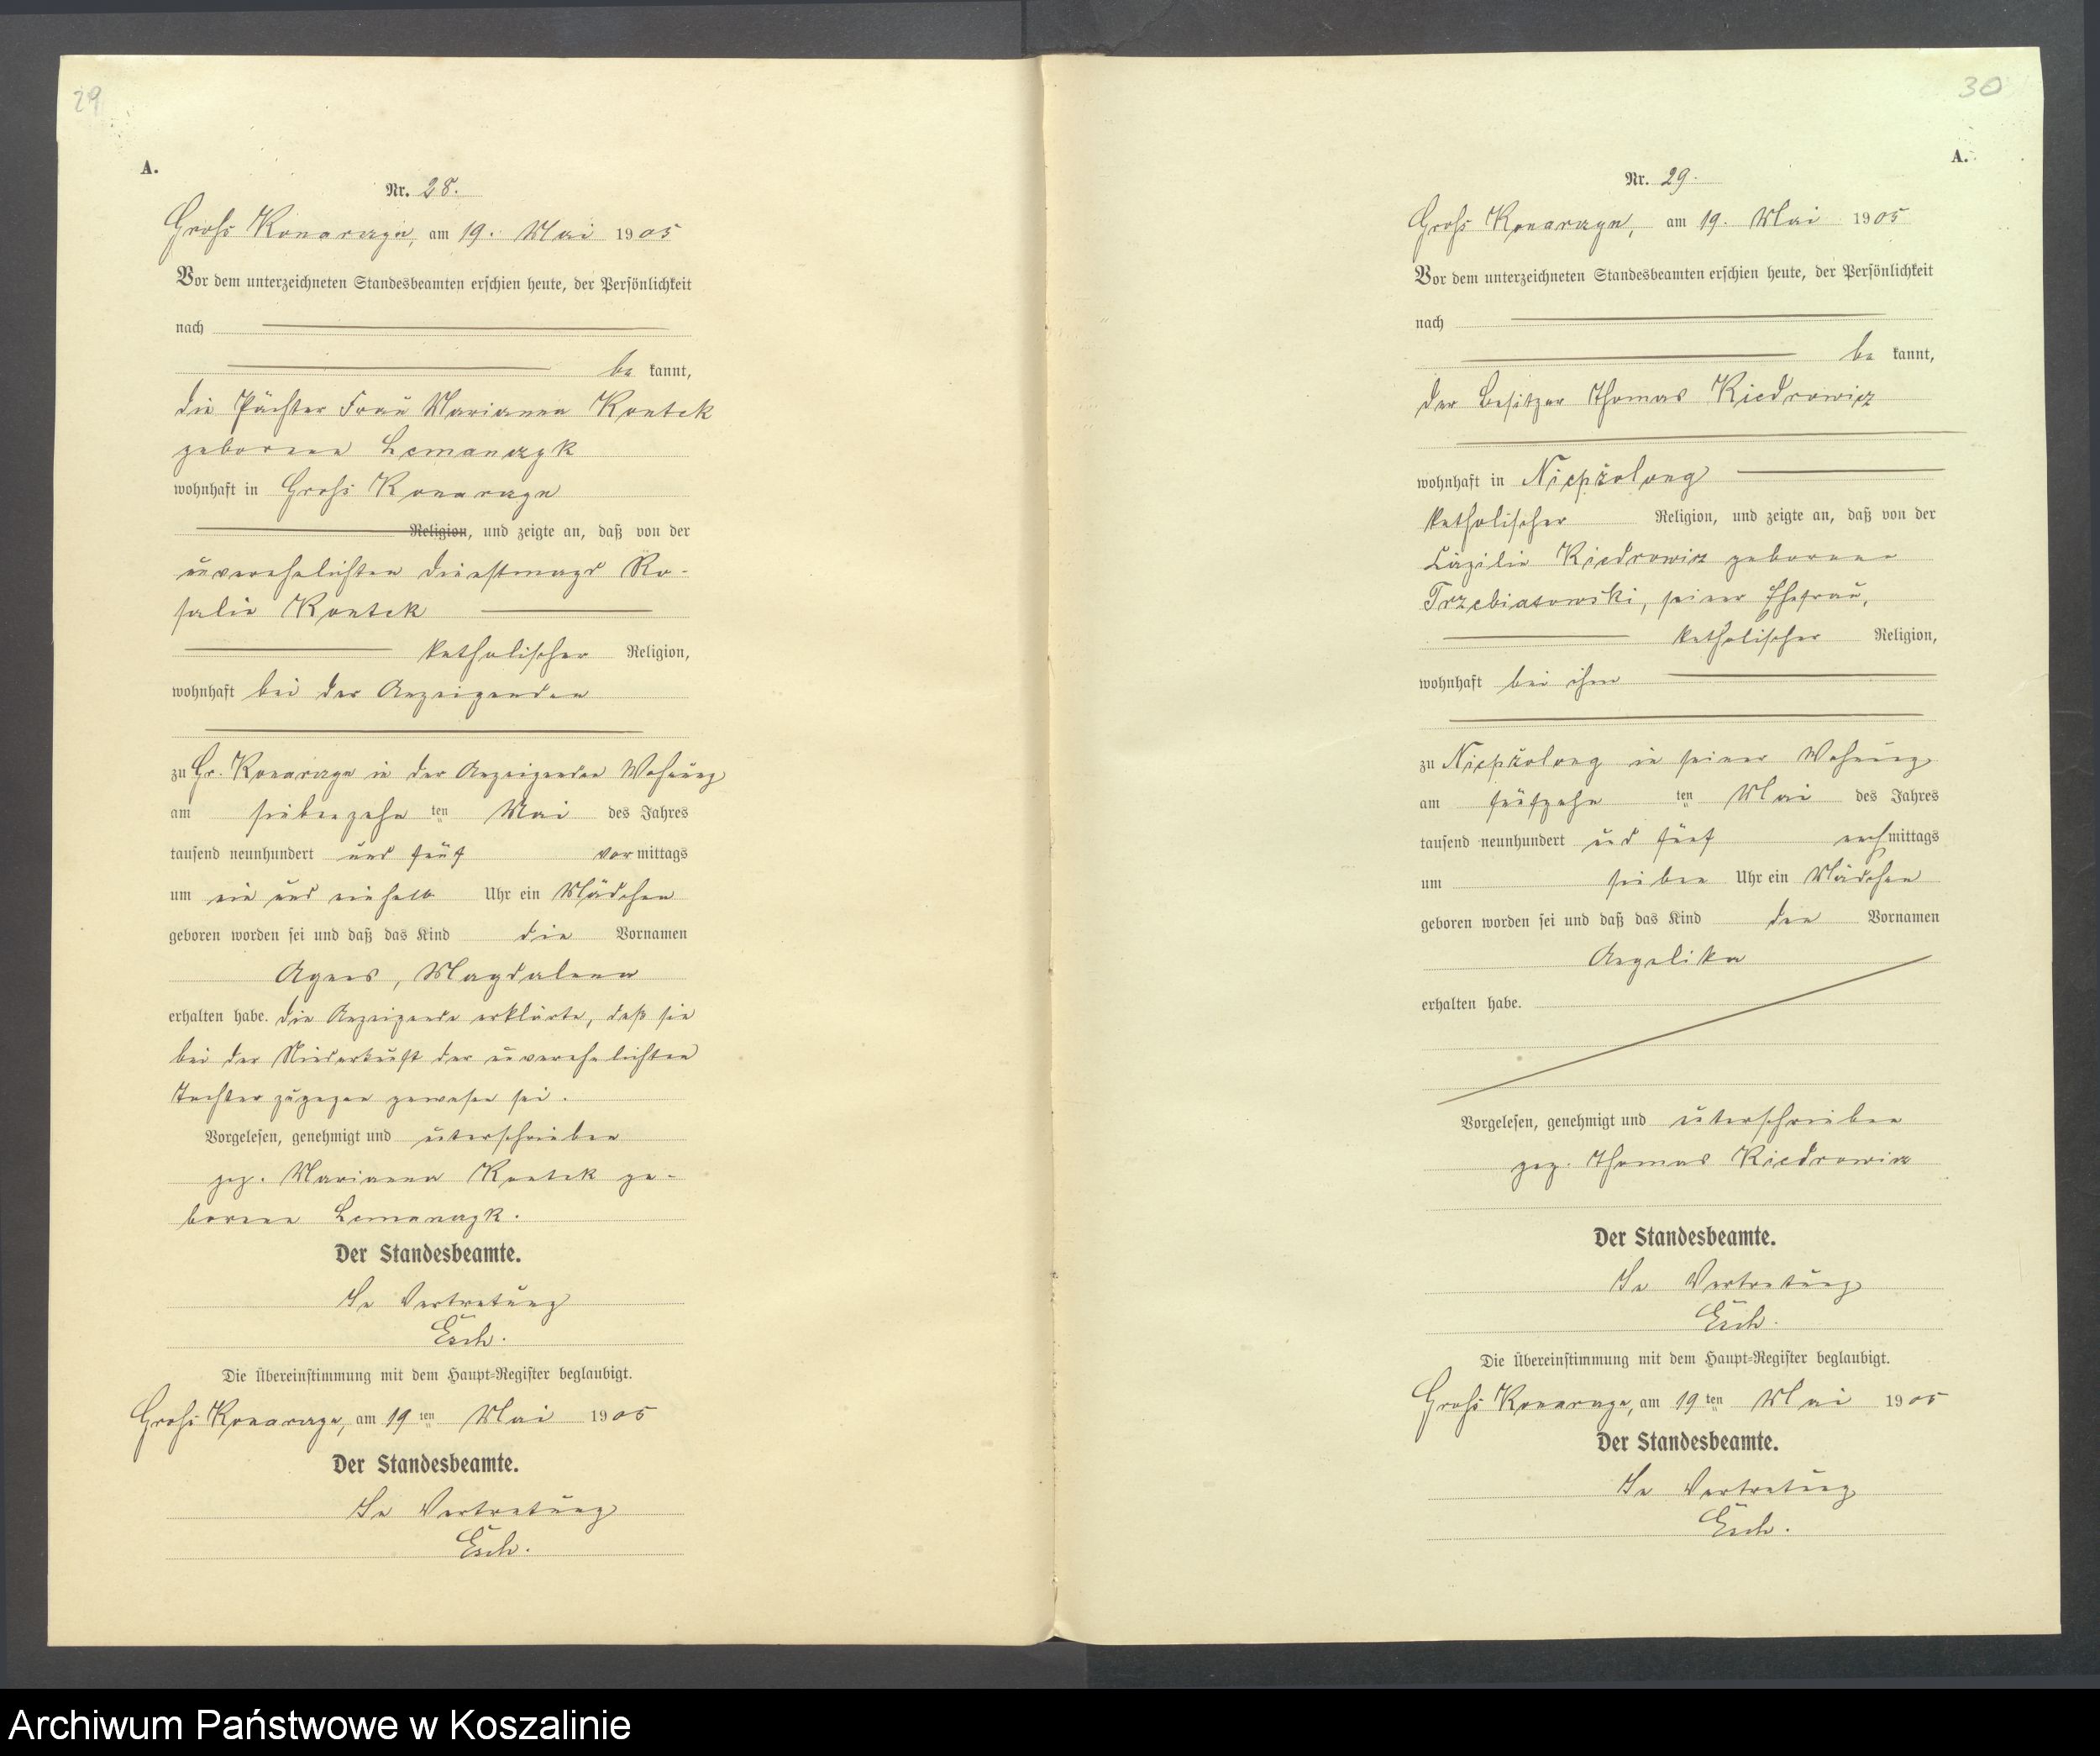 29
A.
Nr. 28.
Groß Konarzyn, am 19. Mai 1905
Vor dem unterzeichneten Standesbeamten erschien heute, der Persönlichkeit
nach
be kannt,
die Pächter Frau Marianna Kontek
geborene Lemanczyk
wohnhaft in Groß Konarzyn
Religion, und zeigte an, daß von der
unverehelichten Dienstmagd Ro-
salie Kontek
katholischer Religion,
wohnhaft bei der Anzeigenden
zu Gr. Konarzyn in der Anzeigenden Wohnung
am siebenzehn ten Mai des Jahres
tausend neunhundert und fünf vor mittags
um ein und einhalb Uhr ein Mädchen
geboren worden sei und daß das Kind die Vornamen
Agnes, Magdalena
erhalten habe. Die Anzeigende erklärte, daß sie
bei der Niederkunft der unverehelichten
Tochter zugegen gewesen sei.
Vorgelesen, genehmigt und unterschrieben
gez. Marianna Kontek ge-
borene Lemanczyk.
Der Standesbeamte.
In Vertretung
Esch.
Die Übereinstimmung mit dem Haupt-Register beglaubigt.
Groß Konarzyn, am 19 ten Mai 1905
Der Standesbeamte.
In Vertretung
Esch.
30
A.
Nr. 29.
Groß Konarzyn, am 19. Mai 1905
Vor dem unterzeichneten Standesbeamten erschien heute, der Persönlichkeit
nach
be kannt,
der Besitzer Thomas Kiedrowicz
wohnhaft in Niepżolong
katholischer Religion, und zeigte an, daß von der
Cäzilie Kiedrowicz geborene
Trzebiatowski, seiner Ehefrau,
katholischer Religion,
wohnhaft bei ihm
zu Niepżolong in seiner Wohnung
am fünfzehn ten Mai des Jahres
tausend neunhundert und fünf nach mittags
um sieben Uhr ein Mädchen
geboren worden sei und daß das Kind den Vornamen
Angelika
erhalten habe.
Vorgelesen, genehmigt und unterschrieben
gez. Thomas Kiedrowicz
Der Standesbeamte.
In Vertretung
Esch.
Die Übereinstimmung mit dem Haupt-Register beglaubigt.
Groß Konarzyn, am 19 ten Mai 1905
Der Standesbeamte.
In Vertretung
Esch.
Archiwum Państwowe w Koszalinie